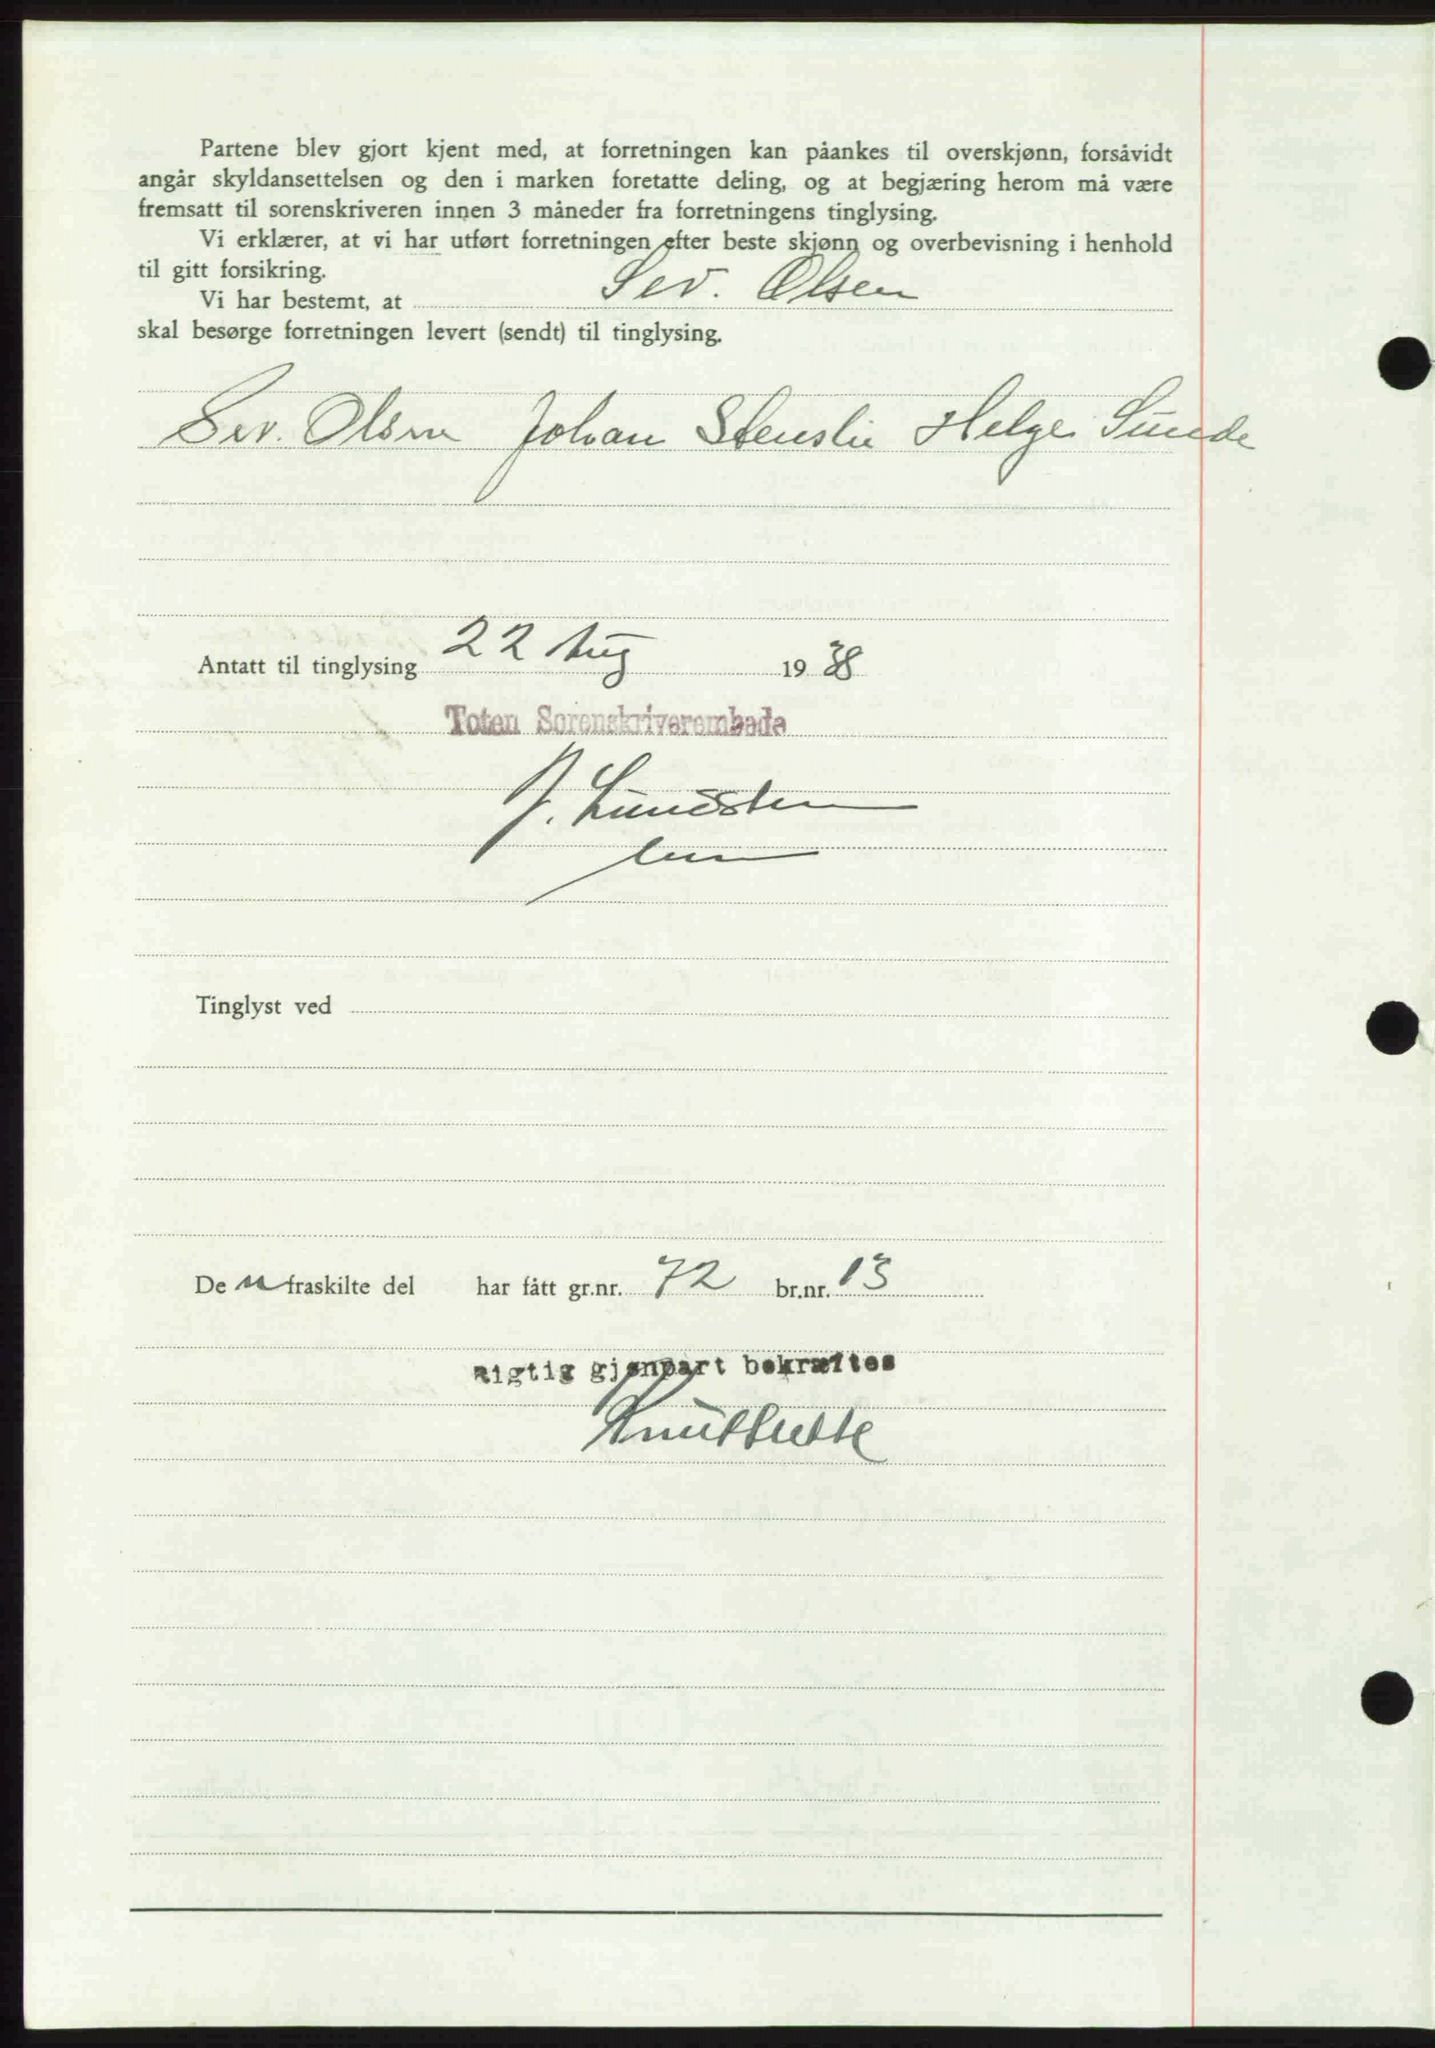 Partene blev gjort kjent med, at forretningen kan påankes til overskjønn, forsåvidt
angår skyldansettelsen og den i marken foretatte deling, og at begjæring herom må være
fremsatt til sorenskriveren innen 3 måneder fra forretningens tinglysing.
Vi erklærer, at vi har utført forretningen efter beste skjønn og overbevisning i henhold
til gitt forsikring.
Vi har bestemt, at Sev. Olsen
skal besørge forretningen levert (sendt) til tinglysing.
Sev. Olsen Johan Stenslie Helge Sunde
Antatt til tinglysing 22 Aug 1938
Toten Sorenskriverembede
Tinglyst ved
De n fraskilte del har fått gr.nr. 72 br.nr. 13
Rigtig gjenpart bekræftes